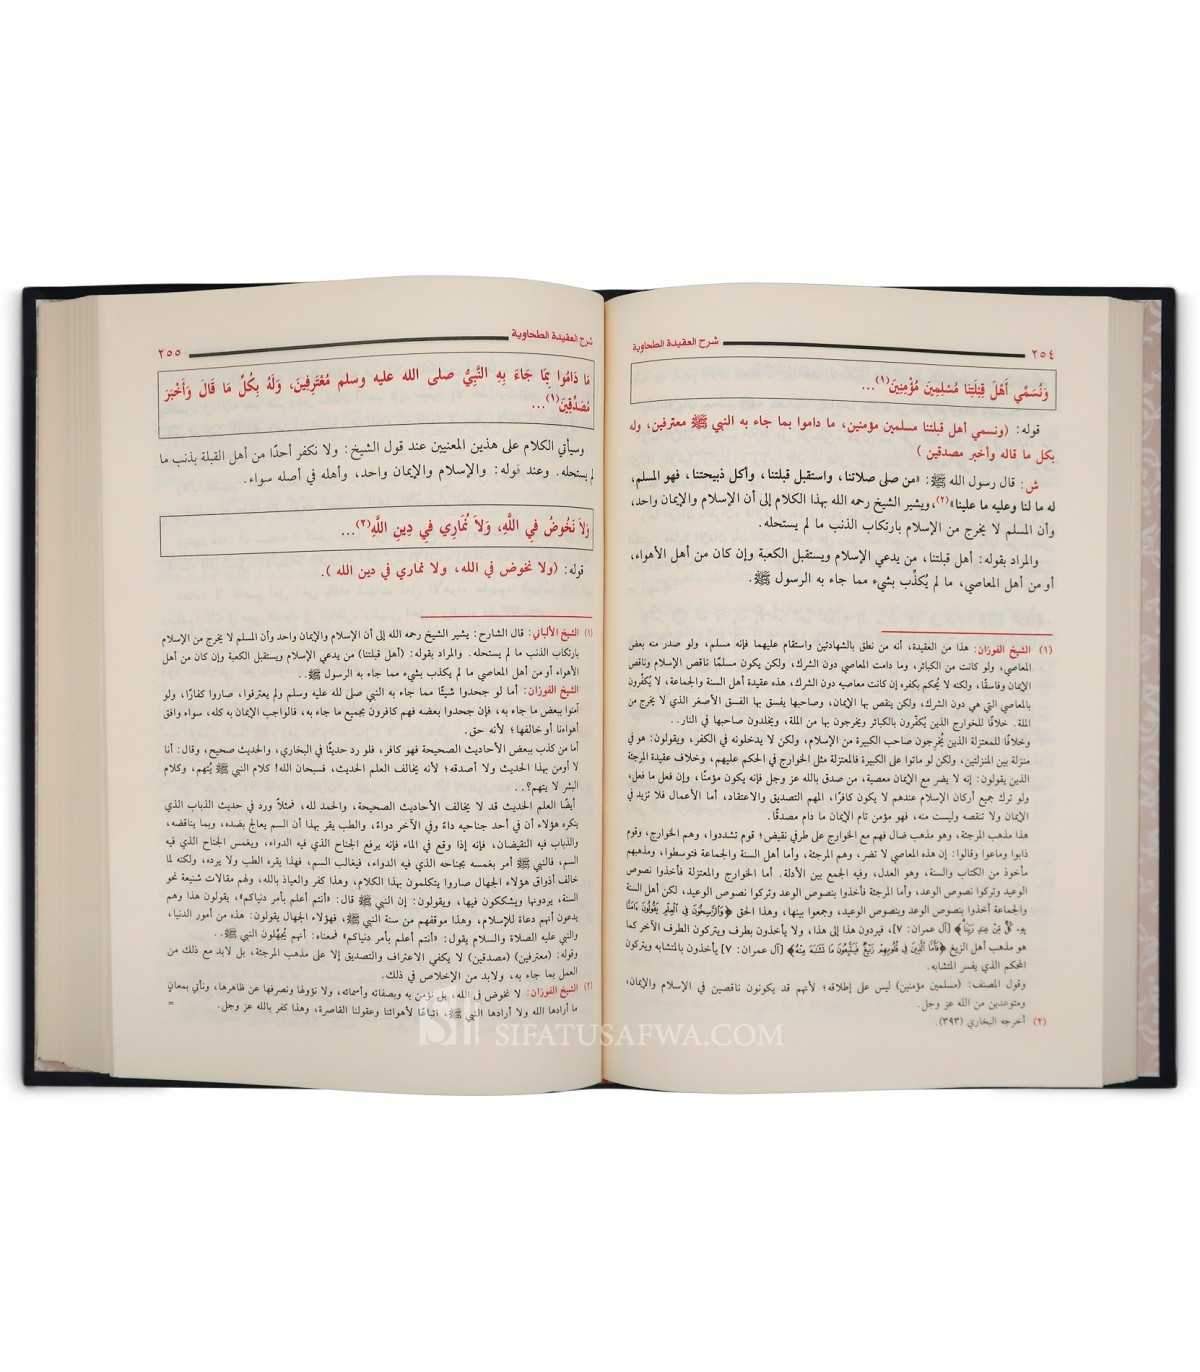 شرح العقيدة الطحاوية
٢٥٤
وَنُسَمِّي أَهْلَ قِبْلَتِنَا مُسْلِمِينَ مُؤْمِنِينَ(١)...
قوله: (ونسمي أهل قبلتنا مسلمين مؤمنين، ما داموا بما جاء به النبي ﷺ معترفين، وله
بكل ما قاله وأخبر مصدقين)
ش: قال رسول الله ﷺ: «من صلى صلاتنا، واستقبل قبلتنا، وأكل ذبيحتنا، فهو المسلم،
له ما لنا وعليه ما علينا»(٢)، ويشير الشيخ رحمه الله بهذا الكلام إلى أن الإسلام والإيمان واحد،
وأن المسلم لا يخرج من الإسلام بارتكاب الذنب ما لم يستحله.
والمراد بقوله: أهل قبلتنا، من يدعي الإسلام ويستقبل الكعبة وإن كان من أهل الأهواء،
أو من أهل المعاصي، ما لم يُكذِّب بشيء مما جاء به الرسول ﷺ.
(١) الشيخ الفوزان: هذا من العقيدة، أنه من نطق بالشهادتين واستقام عليهما فإنه مسلم، ولو صدر منه بعض
المعاصي، ولو كانت من الكبائر، وما دامت المعاصي دون الشرك، ولكن يكون مسلمًا ناقص الإسلام وناقص
الإيمان وفاسقًا، ولكنه لا يُحكم بكفره إن كانت معاصيه دون الشرك، هذه عقيدة أهل السنة والجماعة، لا يُكفِّرون
بالمعاصي التي هي دون الشرك، ولكن ينقص بها الإيمان، وصاحبها يفسق بها الفسق الأصغر الذي لا يخرج من
الملة. خلافًا للخوارج الذين يُكفِّرون بالكبائر ويخرجون بها من الملة، ويخلدون صاحبها في النار..
وخلافًا للمعتزلة الذين يُخرجون صاحب الكبيرة من الإسلام، ولكن لا يدخلونه في الكفر، ويقولون: هو في
منزلة بين المنزلتين، ولكن لو ماتوا على الكبيرة فالمعتزلة مثل الخوارج في الحكم عليهم، وخلاف عقيدة المرجئة
الذين يقولون: إنه لا يضر مع الإيمان معصية، من صدق بالله عز وجل فإنه يكون مؤمنًا، وإن فعل ما فعل،
ولو ترك جميع أركان الإسلام عندهم لا يكون كافرًا، المهم التصديق والاعتقاد، أما الأعمال فلا تزيد في
الإيمان ولا تنقصه وليست منه، فهو مؤمن تام الإيمان ما دام مصدقًا.
هذا مذهب المرجئة، وهو مذهب ضال فهم مع الخوارج على طرفي نقيض؛ قوم تشددوا، وهم الخوارج، وقوم
ذابوا وماعوا وقالوا: إن هذه المعاصي لا تضر، وهم المرجئة، وأما أهل السنة والجماعة فتوسطوا، ومذهبهم
مأخوذ من الكتاب والسنة، وهو العدل، وفيه الجمع بين الأدلة. أما الخوارج والمعتزلة فأخذوا نصوص
الوعيد وتركوا نصوص الوعد، وأما المرجئة فأخذوا بنصوص الوعد وتركوا نصوص الوعيد، لكن أهل السنة
والجماعة أخذوا بنصوص الوعد وبنصوص الوعيد، وجمعوا بينها، وهذا الحق ﴿وَٱلرَّٰسِخُونَ فِى ٱلْعِلْمِ يَقُولُونَ ءَامَنَّا
بِهِۦ كُلٌّ مِّنْ عِندِ رَبِّنَا﴾ [آل عمران: ٧]، فيردون هذا إلى هذا، ولا يأخذون بطرف ويتركون الطرف الآخر كما
هو مذهب أهل الزيغ ﴿فَأَمَّا ٱلَّذِينَ فِى قُلُوبِهِمْ زَيْغٌ فَيَتَّبِعُونَ مَا تَشَٰبَهَ مِنْهُ﴾ [آل عمران: ٧] يأخذون بالمتشابه ويتركون
المحكم الذي يفسر المتشابه.
وقول المصنف: (مسلمين مؤمنين) ليس على إطلاقه؛ لأنهم قد يكونون ناقصين في الإسلام والإيمان،
ومتوعدين من الله عز وجل.
(٢) أخرجه البخاري (٣٩٣).
شرح العقيدة الطحاوية
٢٥٥
مَا دَامُوا بِمَا جَاءَ بِهِ النَّبِيُّ صلى الله عليه وسلم مُعْتَرِفِينَ، وَلَهُ بِكُلِّ مَا قَالَ وَأَخْبَرَ
مُصَدِّقِينَ(١)...
وسيأتي الكلام على هذين المعنيين عند قول الشيخ: ولا نكفر أحدًا من أهل القبلة بذنب ما
لم يستحله. وعند قوله: والإسلام والإيمان واحد، وأهله في أصله سواء.
وَلاَ نَخُوضُ فِي اللَّهِ، وَلاَ نُمَارِي فِي دِينِ اللَّهِ(٢)...
قوله: (ولا نخوض في الله، ولا نماري في دين الله).
(١) الشيخ الألباني: قال الشارح: يشير الشيخ رحمه الله إلى أن الإسلام والإيمان واحد وأن المسلم لا يخرج من الإسلام
بارتكاب الذنب ما لم يستحله. والمراد بقوله: (أهل قبلتنا) من يدعي الإسلام ويستقبل الكعبة وإن كان من أهل
الأهواء أو من أهل المعاصي ما لم يكذب بشيء مما جاء به الرسول ﷺ..
الشيخ الفوزان: أما لو جحدوا شيئًا مما جاء به النبي صلى لله عليه وسلم ولم يعترفوا، صاروا كفارًا، ولو
آمنوا ببعض ما جاء به، فإن جحدوا بعضه فهم كافرون بجميع ما جاء به، فالواجب الإيمان به كله، سواء وافق
أهواءنا أو خالفها؛ لأنه حق.
أما من كذب ببعض الأحاديث الصحيحة فهو كافر، فلو رد حديثًا في البخاري، والحديث صحيح، وقال: أنا
لا أومن بهذا الحديث ولا أصدقه؛ لأنه يخالف العلم الحديث، فسبحان الله! كلام النبي ﷺ يُتهم، وكلام
البشر لا يتهم؟..
أيضًا العلم الحديث قد لا يخالف الأحاديث الصحيحة، والحمد لله، فمثلاً ورد في حديث الذباب الذي
ينكره هؤلاء أن في أحد جناحيه داءً وفي الآخر دواءً، والطب يقر بهذا أن السم يعالج بضده، وبما يناقضه،
والذباب فيه النقيضان، فإنه إذا وقع في الماء فإنه يرفع الجناح الذي فيه الدواء، ويغمس الجناح الذي فيه
السم، فالنبي ﷺ أمر بغمسه بجناحه الذي فيه الدواء، فيغالب السم، فهذا يقره الطب ولا يرده، ولكنه لما
خالف أذواق هؤلاء الجهال صاروا يتكلمون بهذا الكلام، وهذا كفر والعياذ بالله، ولهم مقالات شنيعة نحو
السنة، يردونها ويشككون فيها، ويقولون: إن النبي ﷺ قال: «أنتم أعلم بأمر دنياكم»، يقولون هذا وهم
يدعون أنهم دعاة للإسلام، وهذا موقفهم من سنة النبي ﷺ، فهؤلاء الجهال يقولون: هذه من أمور الدنيا،
والنبي عليه الصلاة والسلام يقول: «أنتم أعلم بأمر دنياكم» فمعناه: أنهم يُجهِّلون النبي ﷺ..
وقوله: (معترفين) (مصدقين) لا يكفي الاعتراف والتصديق إلا على مذهب المرجئة، بل لابد مع ذلك من
العمل بما جاء به، ولابد من الإخلاص في ذلك.
(٢) الشيخ الفوزان: لا نخوض في الله، بل نؤمن به وبصفاته وأسمائه، ولا نؤولها ونصرفها عن ظاهرها، ونأتي بمعانٍ
ما أرادها الله ولا أرادها النبي ﷺ، اتباعًا لأهوائنا وعقولنا القاصرة، وهذا كفر بالله عز وجل. =
SIFATUSAFWA.COM